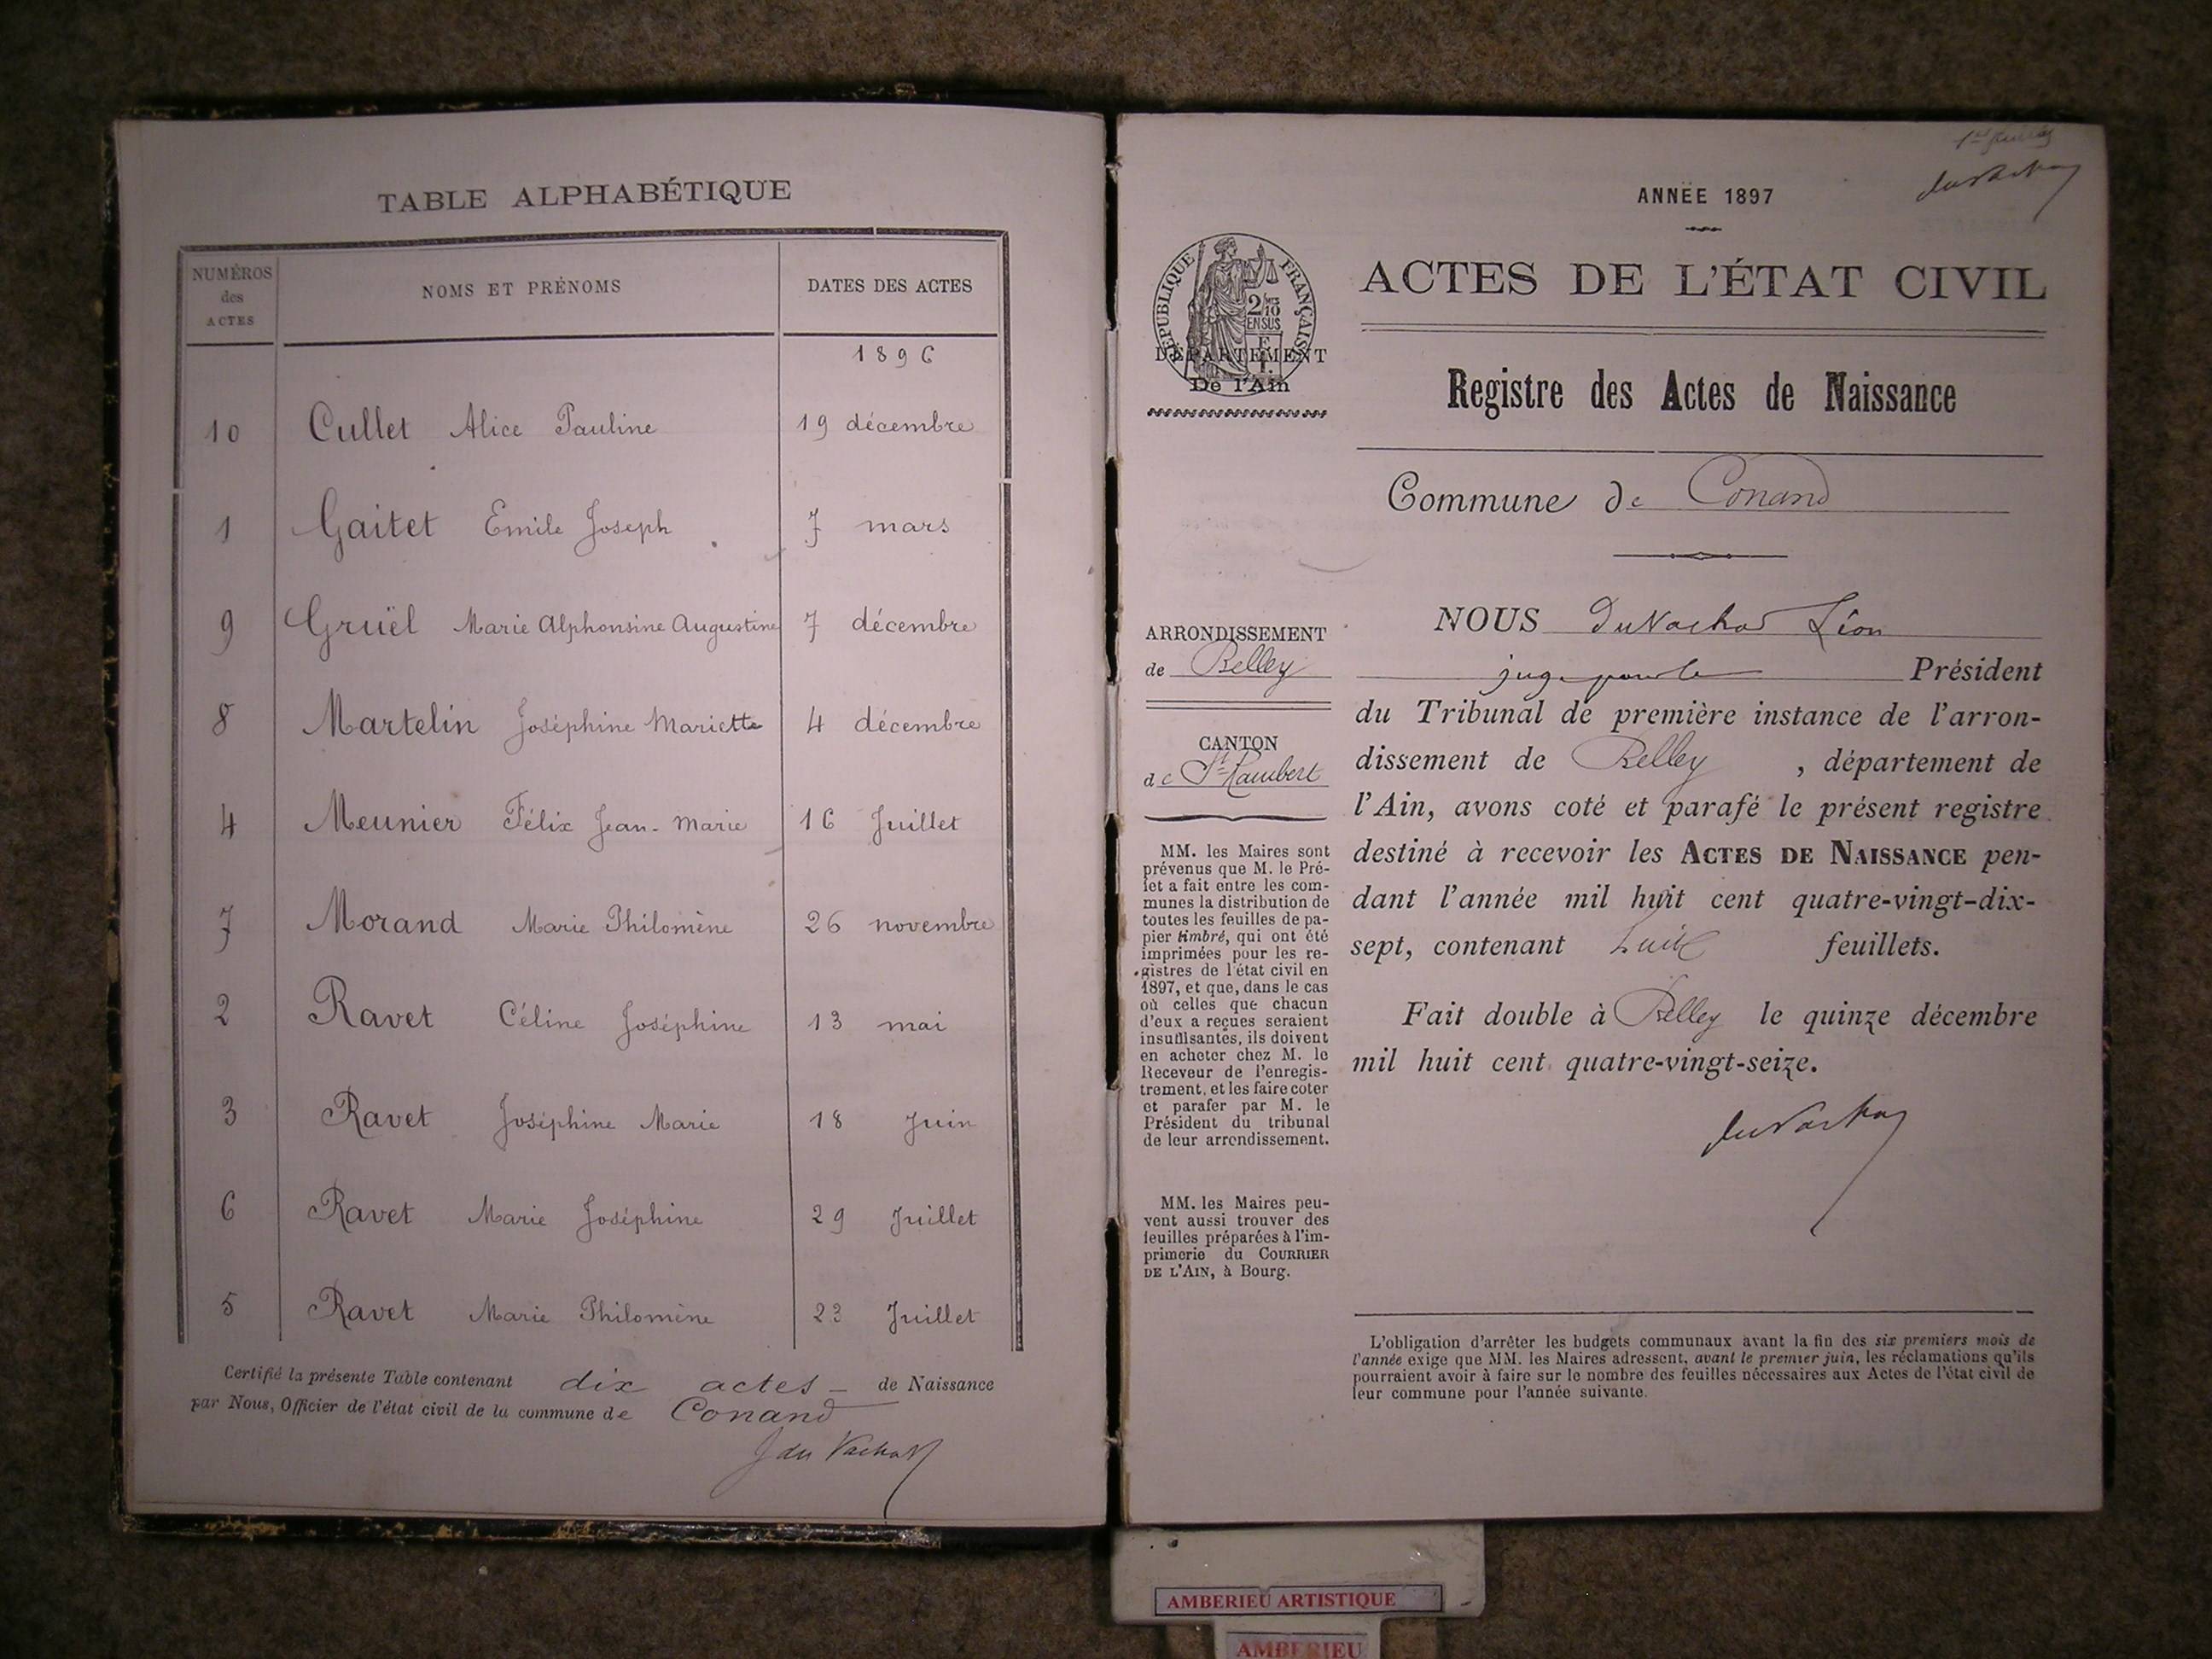 TABLE ALPHABÉTIQUE
NUMÉROS des ACTES NOMS ET PRÉNOMS DATES DES ACTES
1896
10 Cullet Alice Pauline 19 décembre
1 Gaitet Emile Joseph 7 mars
9 Gruël Marie Alphonsine Augustine 7 décembre
8 Martelin Joséphine Mariette 4 décembre
4 Meunier Félix Jean-Marie 16 Juillet
7 Morand Marie Philomène 26 novembre
2 Ravet Céline Joséphine 13 mai
3 Ravet Joséphine Marie 18 Juin
6 Ravet Marie Joséphine 29 Juillet
5 Ravet Marie Philomène 23 Juillet
Certifié la présente Table contenant dix actes de Naissance
par Nous, Officier de l'état civil de la commune de Conand
J du Vachat
ANNÉE 1897
RÉPUBLIQUE FRANÇAISE
2/10 EN SUS
DÉPARTEMENT
De l'Ain
ARRONDISSEMENT
de Belley
CANTON
de St-Rambert
MM. les Maires sont
prévenus que M. le Pré-
fet a fait entre les com-
munes la distribution de
toutes les feuilles de pa-
pier timbré, qui ont été
imprimées pour les re-
gistres de l'état civil en
1897, et que, dans le cas
où celles que chacun
d'eux a reçues seraient
insuffisantes, ils doivent
en acheter chez M. le
Receveur de l'enregis-
trement, et les faire coter
et parafer par M. le
Président du tribunal
de leur arrondissement.
MM. les Maires peu-
vent aussi trouver des
feuilles préparées à l'im-
primerie du COURRIER
DE L'AIN, à Bourg.
ACTES DE L'ÉTAT CIVIL
Registre des Actes de Naissance
Commune de Conand
NOUS DuVachat Léon
juge pour le Président
du Tribunal de première instance de l'arron-
dissement de Belley, département de
l'Ain, avons coté et parafé le présent registre
destiné à recevoir les ACTES DE NAISSANCE pen-
dant l'année mil huit cent quatre-vingt-dix-
sept, contenant huit feuillets.
Fait double à Belley le quinze décembre
mil huit cent quatre-vingt-seize.
duVachat
L'obligation d'arrêter les budgets communaux avant la fin des six premiers mois de
l'année exige que MM. les Maires adressent, avant le premier juin, les réclamations qu'ils
pourraient avoir à faire sur le nombre des feuilles nécessaires aux Actes de l'état civil de
leur commune pour l'année suivante.
AMBERIEU ARTISTIQUE
AMBERIEU